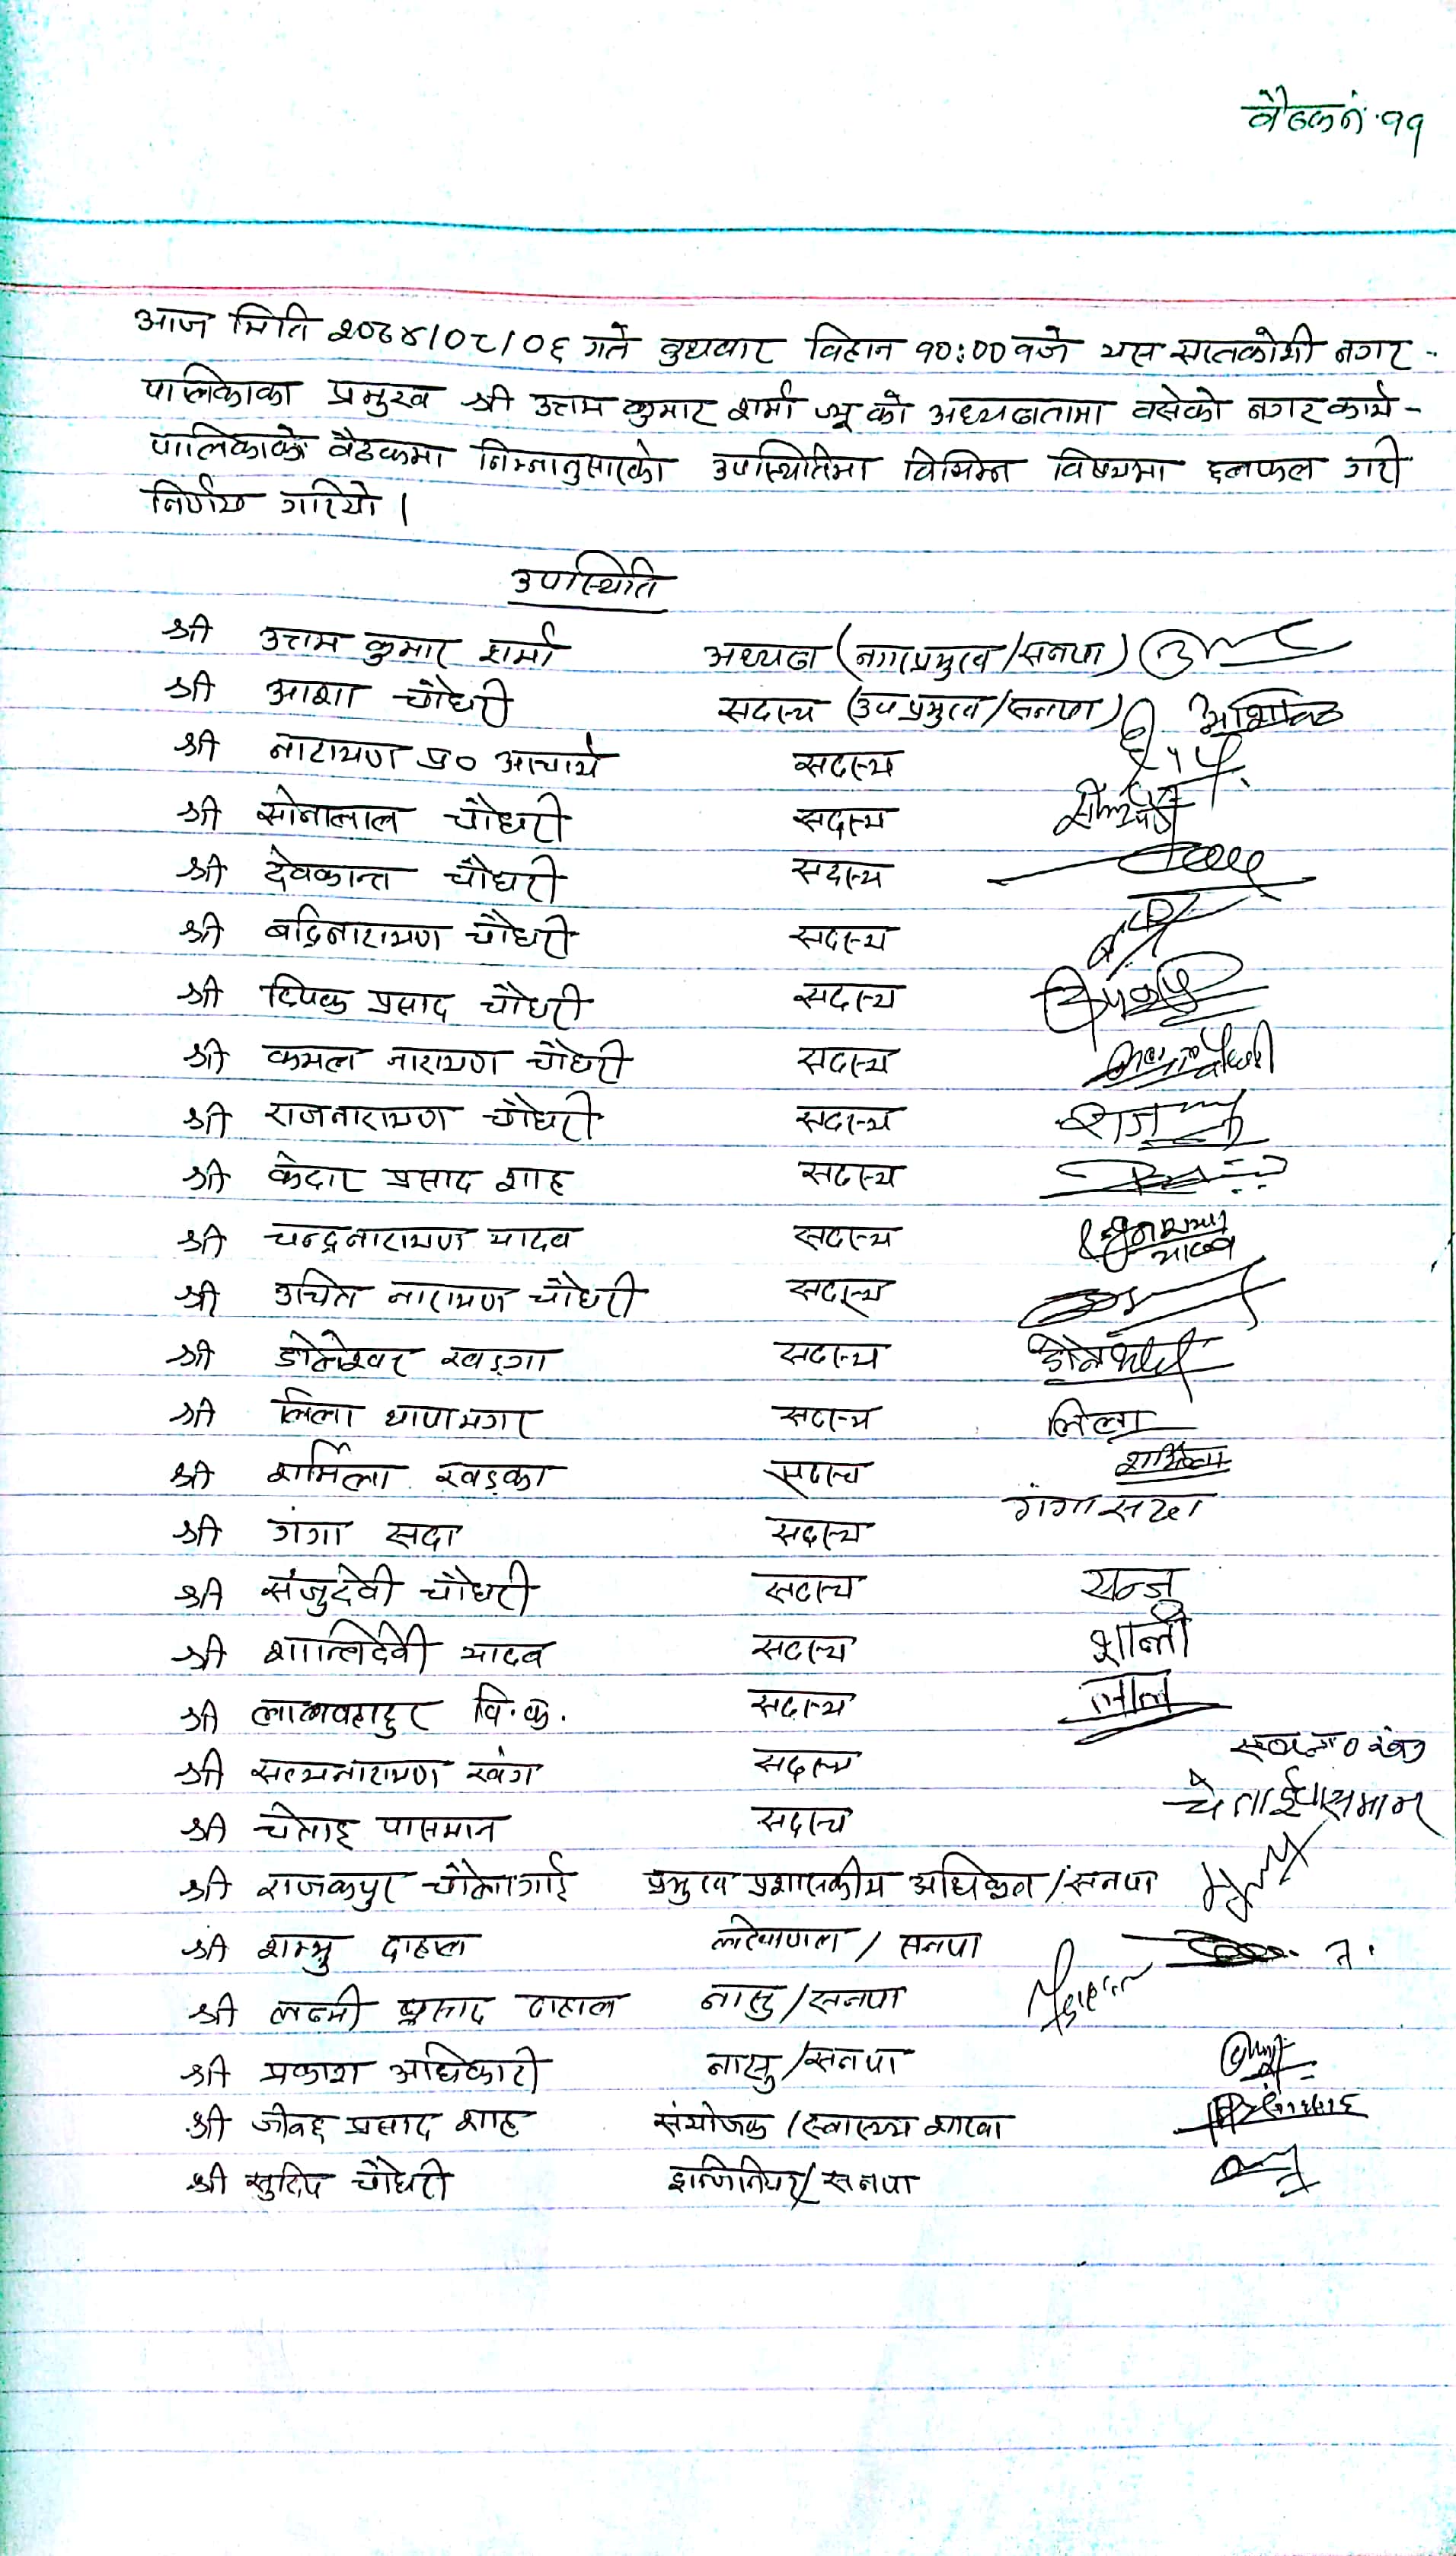 बैठक नं. ११
आज मिति २०७४/०८/०६ गते बुधवार विहान १०:०० वजे यस सप्तकोशी नगर-
पालिकाका प्रमुख श्री उत्तम कुमार शर्मा ज्यू को अध्यक्षतामा वसेको नगर कार्य-
पालिकाको वैठकमा निम्नानुसारको उपस्थितिमा विभिन्न विषयमा छलफल गरी
निर्णय गरियो ।
उपस्थिति
श्री उत्तम कुमार शर्मा अध्यक्ष (नगरप्रमुख/सनपा)
श्री आशा चौधरी सदस्य (उपप्रमुख/सनपा)
श्री नारायण प्र० आचार्य सदस्य
श्री सोनालाल चौधरी सदस्य
श्री देवकान्त चौधरी सदस्य
श्री बद्रिनारायण चौधरी सदस्य
श्री दिपक प्रसाद चौधरी सदस्य
श्री कमल नारायण चौधरी सदस्य
श्री राजनारायण चौधरी सदस्य राज
श्री केदार प्रसाद शाह सदस्य
श्री चन्द्रनारायण यादव सदस्य
श्री उचित नारायण चौधरी सदस्य
श्री डोलेश्वर खड्गा सदस्य
श्री लिला थापामगर सदस्य लिला
श्री शर्मिला खड्का सदस्य शर्मिला
श्री गंगा सदा सदस्य गंगा सदा
श्री संजुदेवी चौधरी सदस्य सन्जु
श्री शान्तिदेवी यादव सदस्य शान्ती
श्री लालवहादुर वि.क. सदस्य लाल
श्री सत्यनारायण खंग सदस्य
श्री चेताइ पासमान सदस्य चेताई पासमान
श्री राजकपुर चौलागाई प्रमुख प्रशासकीय अधिकृत/सनपा
श्री शम्भु दाहाल लेखापाल/सनपा
श्री लक्ष्मी प्रसाद दाहाल नासु/सनपा
श्री प्रकाश अधिकारी नासु/सनपा
श्री जीवछ प्रसाद शाह संयोजक/स्वास्थ्य शाखा
श्री सुदिप चौधरी इन्जिनियर/सनपा